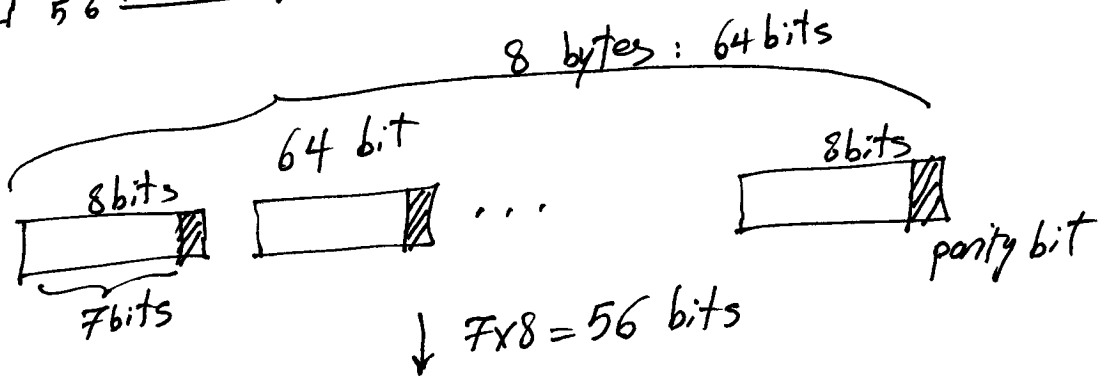 56
8 bytes : 64 bits
64 bit
8bits
8bits
...
parity bit
7bits
↓ 7x8 = 56 bits